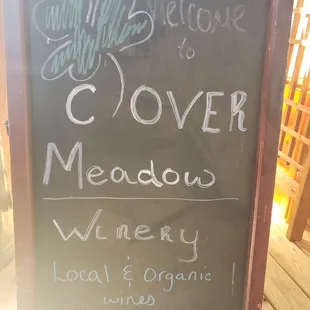 Welcome
to
CLOVER
Meadow
Winery
Local & Organic
wines